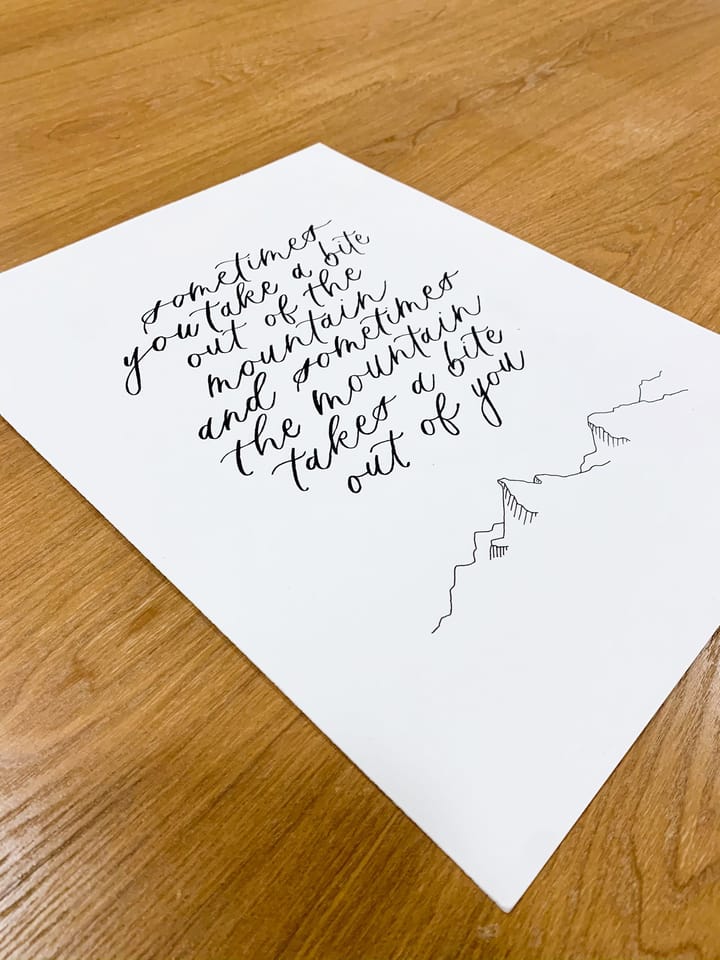 sometimes
you take a bite
out of the
mountain
and sometimes
the mountain
takes a bite
out of you